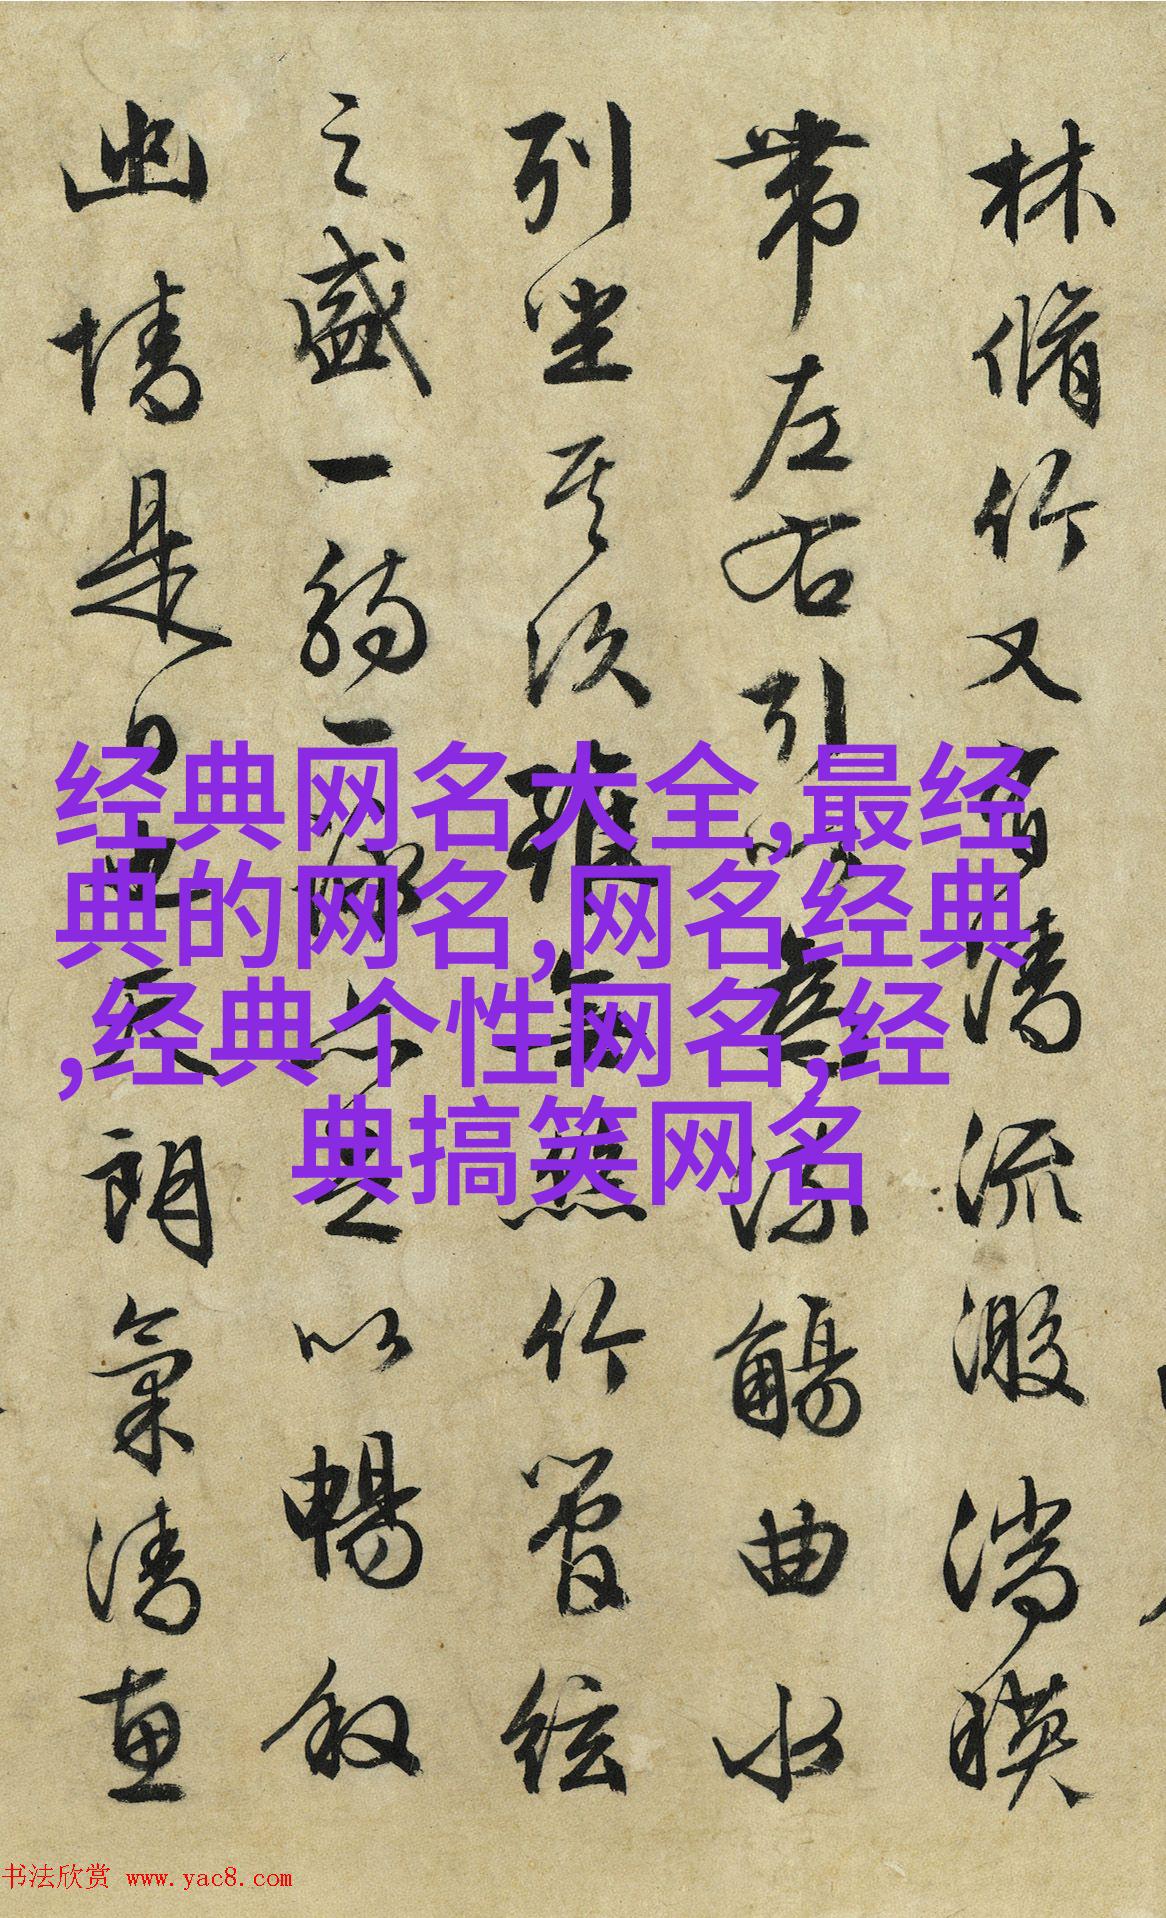 林脩竹又有清流激湍暎
帶左右引以為流觴曲水
列坐其次雖無絲竹管絃
之盛一觴一詠亦足以暢叙
幽情是日也天朗氣清惠
经典网名大全,最经
典的网名,网名经典
,经典个性网名,经
典搞笑网名
书法欣赏 www.yac8.com